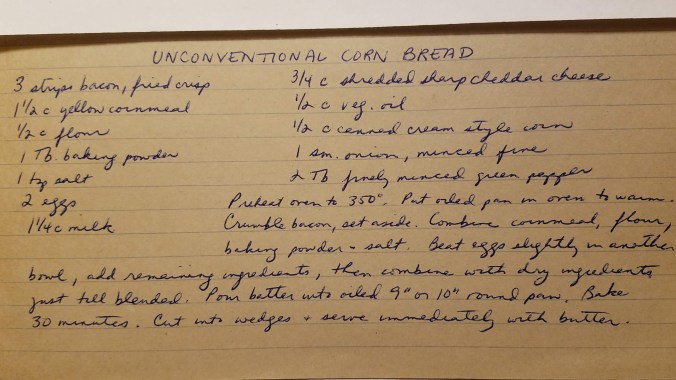 UNCONVENTIONAL CORN BREAD
3 strips bacon, fried crisp
1 1/2 c yellow cornmeal
1/2 c flour
1 Tb. baking powder
1 tsp salt
2 eggs
1 1/4 c milk
3/4 c shredded sharp cheddar cheese
1/2 c veg. oil
1/2 c canned cream style corn
1 sm. onion, minced fine
2 Tb finely minced green pepper
Preheat oven to 350°. Put oiled pan in oven to warm.
Crumble bacon, set aside. Combine cornmeal, flour,
baking powder + salt. Beat eggs slightly in another
bowl, add remaining ingredients, then combine with dry ingredients
just till blended. Pour batter into oiled 9" or 10" round pan. Bake
30 minutes. Cut into wedges + serve immediately with butter.